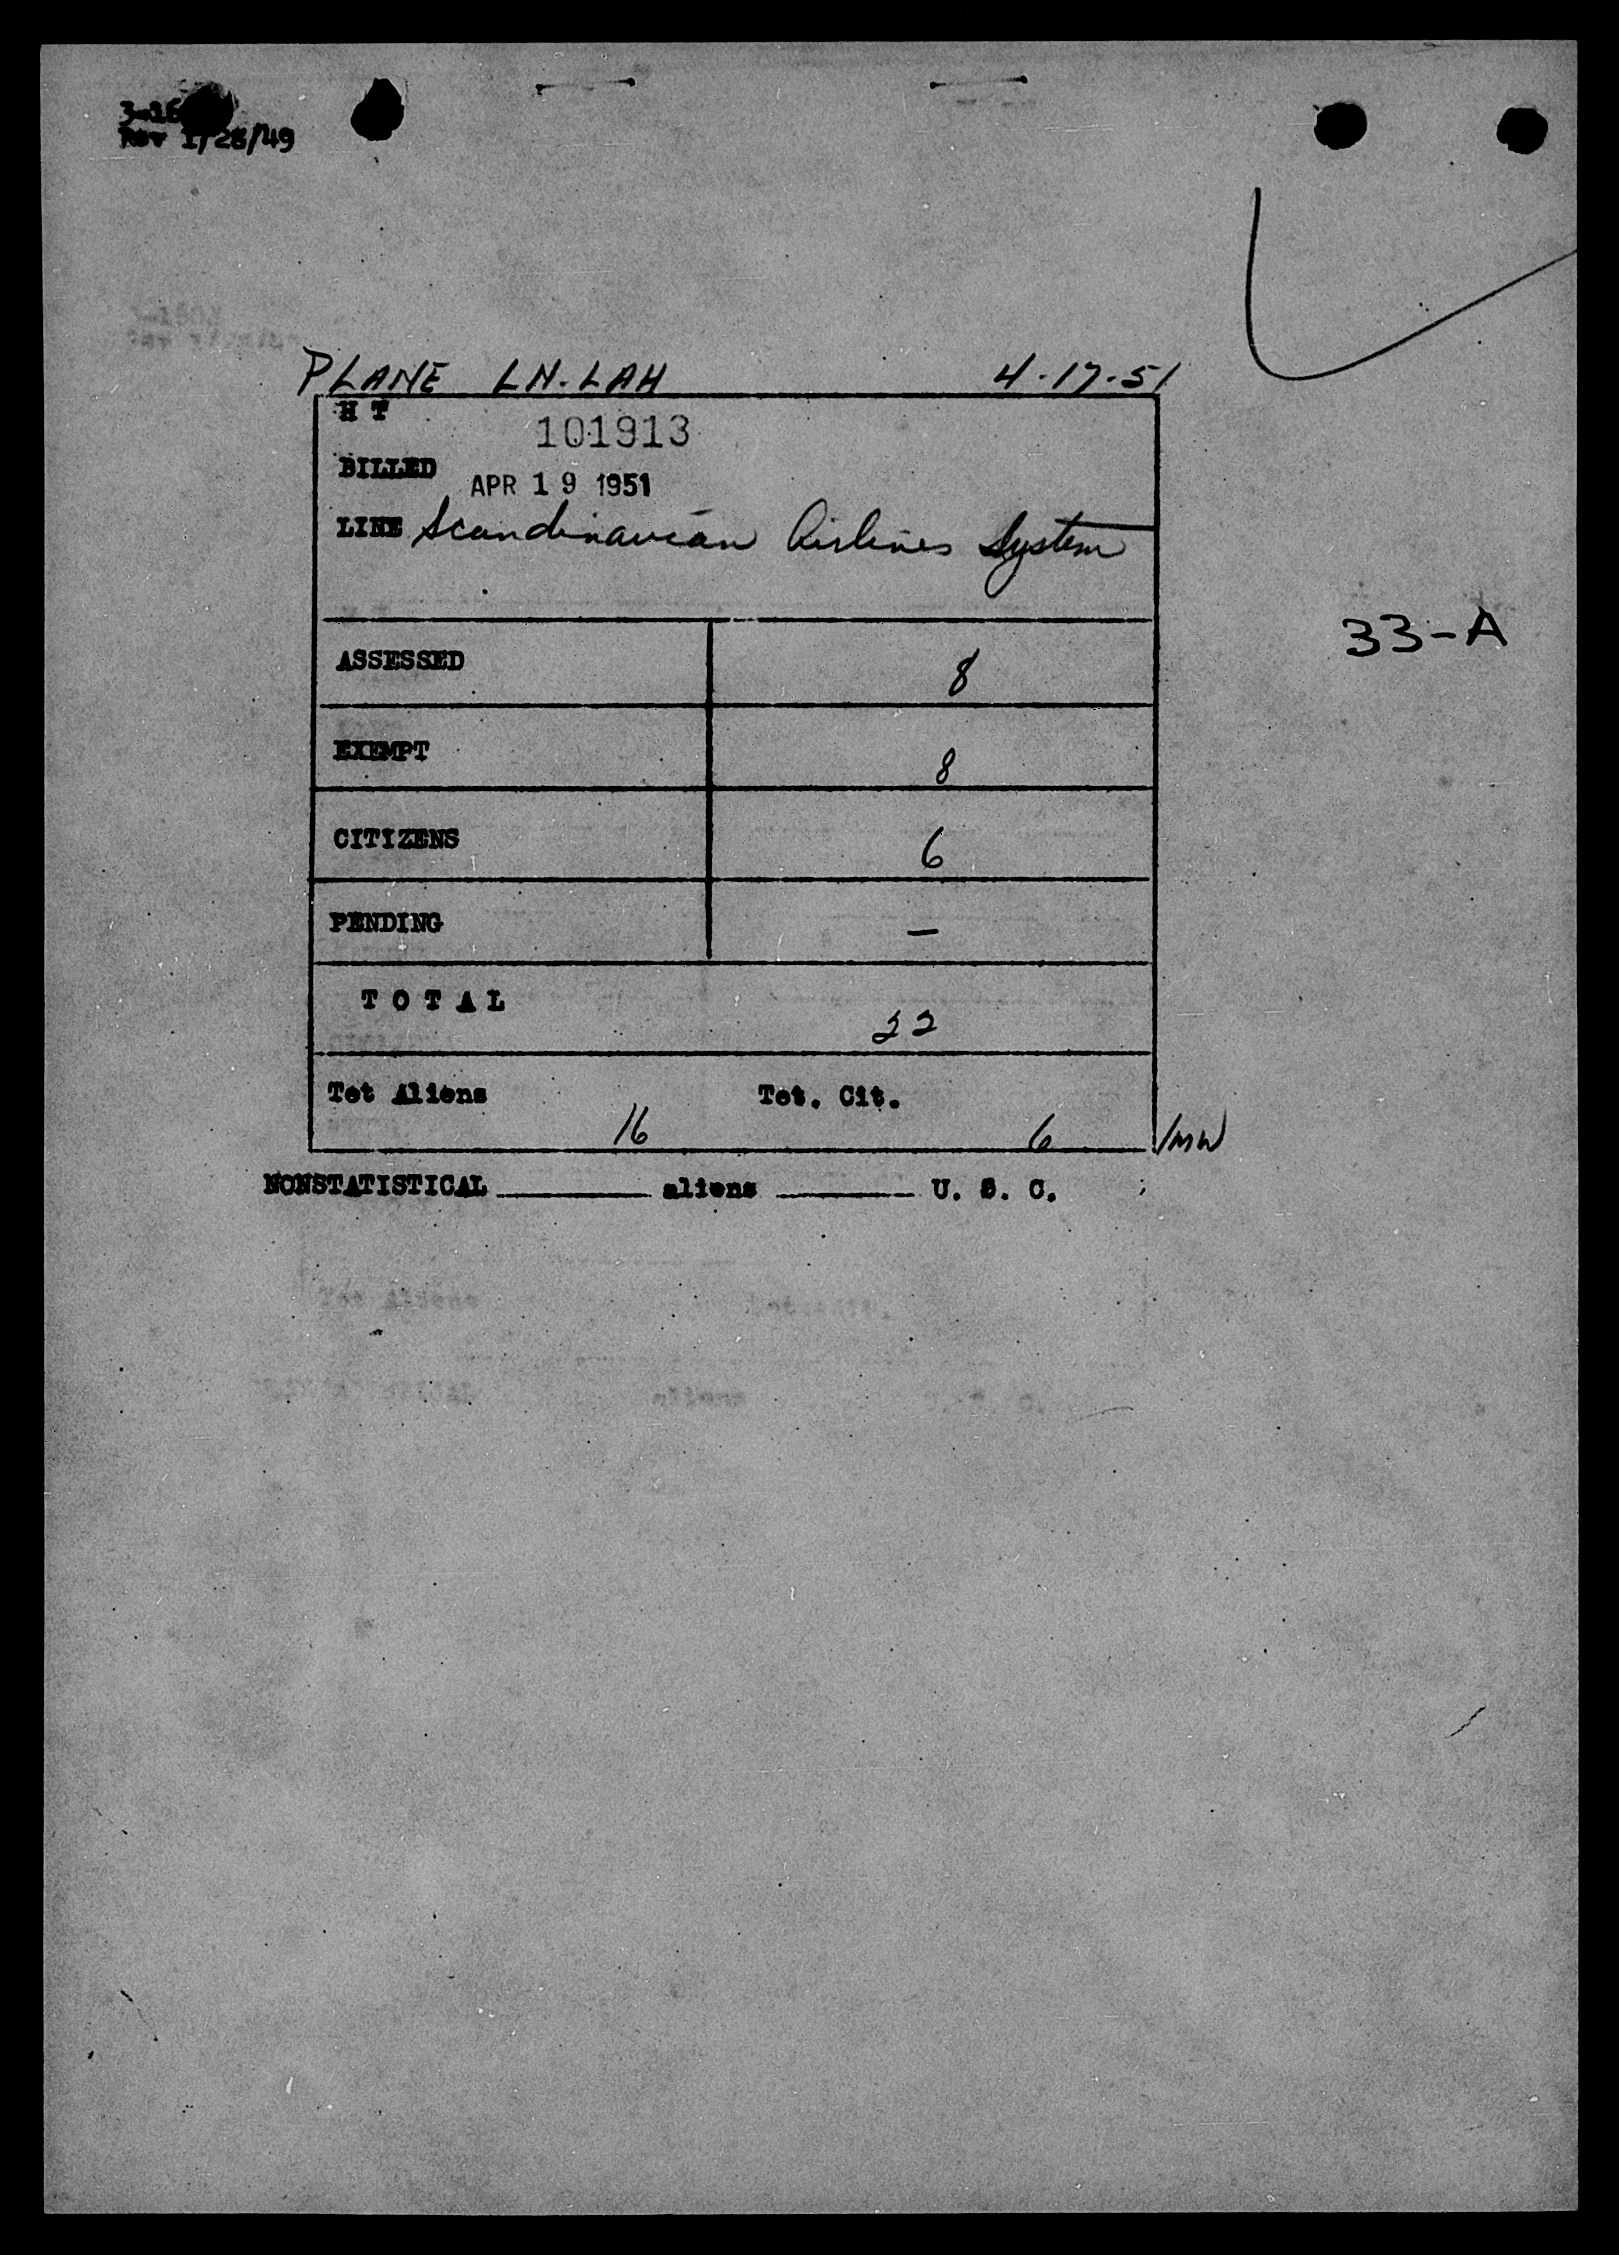 Rev 1/28/49
PLANE LN-LAH 4-17-51
H T 101913
BILLED APR 19 1951
LINE Scandinavian Airlines System
33-A
ASSESSED 8
EXEMPT 8
CITIZENS 6
PENDING —
TOTAL 22
Tot Aliens 16 Tot. Cit. 6 /MW
NONSTATISTICAL ________ aliens ________ U. S. C.